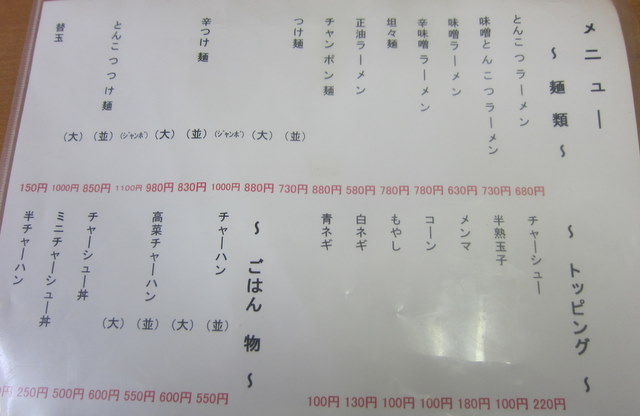 メニュー
~ 麺類 ~
とんこつラーメン 680円
味噌とんこつラーメン 730円
味噌ラーメン 630円
辛味噌ラーメン 780円
坦々麺 780円
正油ラーメン 580円
チャンポン麺 880円
つけ麺 (並) 730円
(大) 880円
(ジャンボ) 1000円
辛つけ麺 (並) 830円
(大) 980円
(ジャンボ) 1100円
とんこつつけ麺 (並) 850円
(大) 1000円
替玉 150円
~ トッピング ~
チャーシュー 220円
半熟玉子 100円
メンマ 180円
コーン 100円
もやし 100円
白ネギ 130円
青ネギ 100円
~ ごはん物 ~
チャーハン (並) 550円
(大) 600円
高菜チャーハン (並) 550円
(大) 600円
チャーシュー丼 500円
ミニチャーシュー丼 250円
半チャーハン